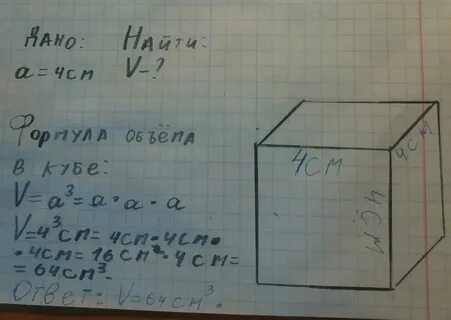 Дано: Найти:
a=4см V-?
Формула объёма
в кубе:
V=a³=a·a·a
V=4³см=4см·4см·
·4см=16см²·4см=
=64см³.
Ответ: V=64см³.
4см
4см
4см